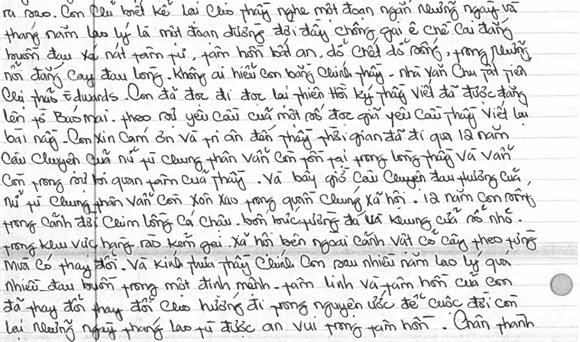 ra sao. Con chỉ biết kể lại cho thầy nghe một đoạn ngắn những ngày và
tháng năm lao lý là một đoạn đường đời đầy chông gai ê chề cai đắng
buồn đau xé nát tâm tư, tâm hồn bất an, dở chết dở sống, trong những
nỗi đắng cay đau lòng. Không ai hiểu con bằng chính thầy - nhà văn Chu tất tiến
Chị thảo Eduards. Con đã đọc đi đọc lại thiên Hồi Ký thầy viết đã được đăng
lên tờ Báo mai. theo sự yêu cầu của một số đọc giả yêu cầu thầy viết lại
bài này. Con xin cám ơn và tri ân đến thầy thời gian đã đi qua 12 năm
câu chuyện của nữ tù chung thân vẫn còn tồn tại trong lòng thầy và vẫn
còn trong sự tới quan tâm của thầy. Và bây giờ câu chuyện đau thương của
nữ tù chung thân vẫn còn xôn xao trong quần chúng xã hội. 12 năm con sống
trong cảnh đời chim lồng cá chậu. bốn bức tường đá và khung cửa sổ nhỏ.
trong khu vực hàng rào kẽm gai. Xã hội bên ngoài cảnh vật cỏ cây theo từng
mùa có thay đổi. Và kính thưa thầy chính con sau nhiều năm lao lý quá
nhiều đau buồn trong một định mệnh. tâm linh và tâm hồn của con
đã thay đổi thay đổi cho hướng đi trong nguyện ước để cuộc đời còn
lại những ngày tháng lao tù được an vui trong tâm hồn. Chân thành